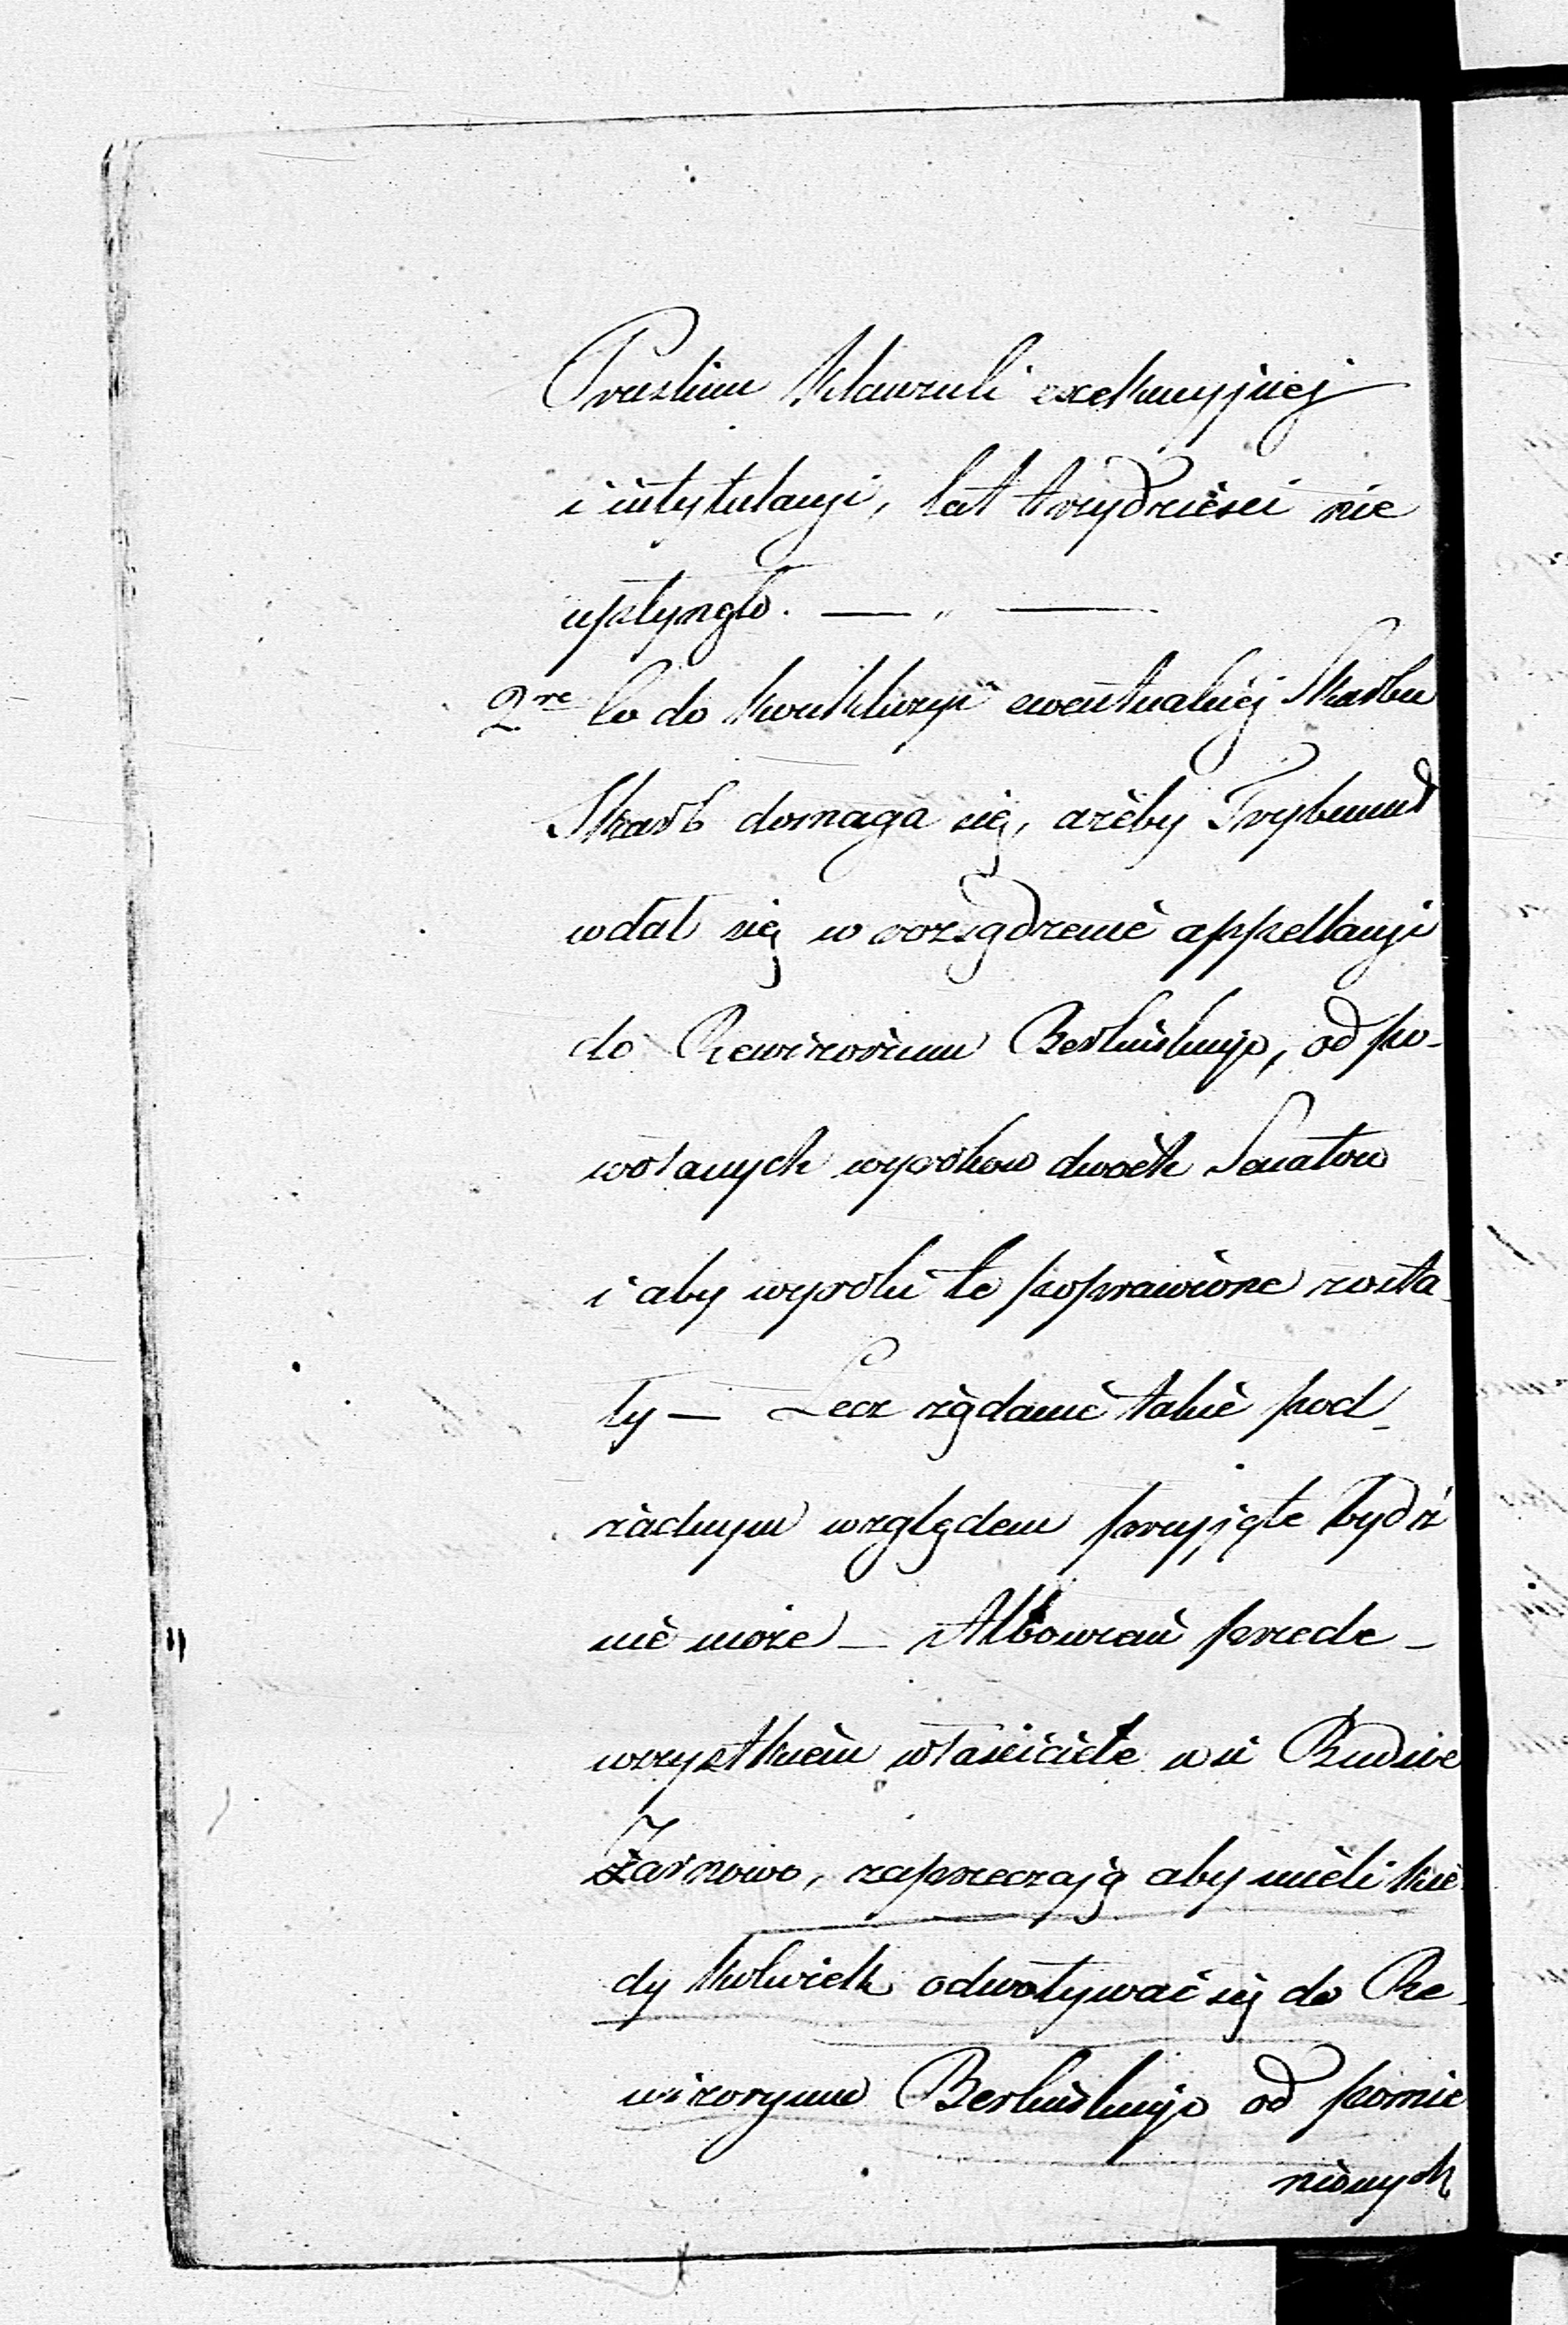 Pruskim klauzuli exekucyjnej
i intytulacyi, lat trzydzieści nie
upłynęło. — „ —
2re Co do konkluzyi ewentualnéj Skarbu
Skarb domaga się, ażeby Trybunał
wdał się w rozsądzenie appellacyi
do Rewizorium Berlińskiego, od po-
wołanych wyroków dwóch Senatów
i aby wyroki te poprawione zosta-
ły — Lecz żądanie takie pod
żadnym względem przyjęte bydź
nie może — Albowiem przede-
wszystkiem właściciele wsi Rudne
Żarnowo, zaprzeczają aby mieli kie-
dy kolwiek odwoływać się do Re-
wizoryum Berlińskiego od pomie
nionych